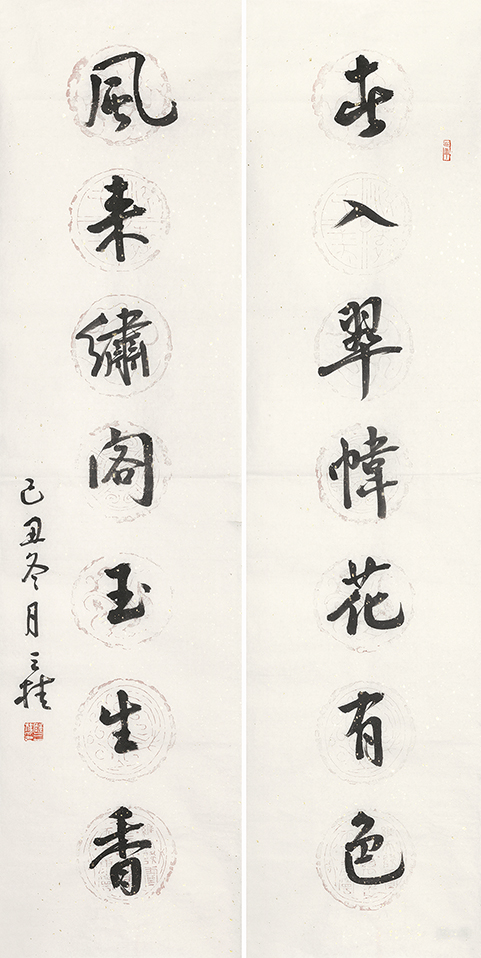 春入翠幃花有色
風来繡閣玉生香
己丑冬月